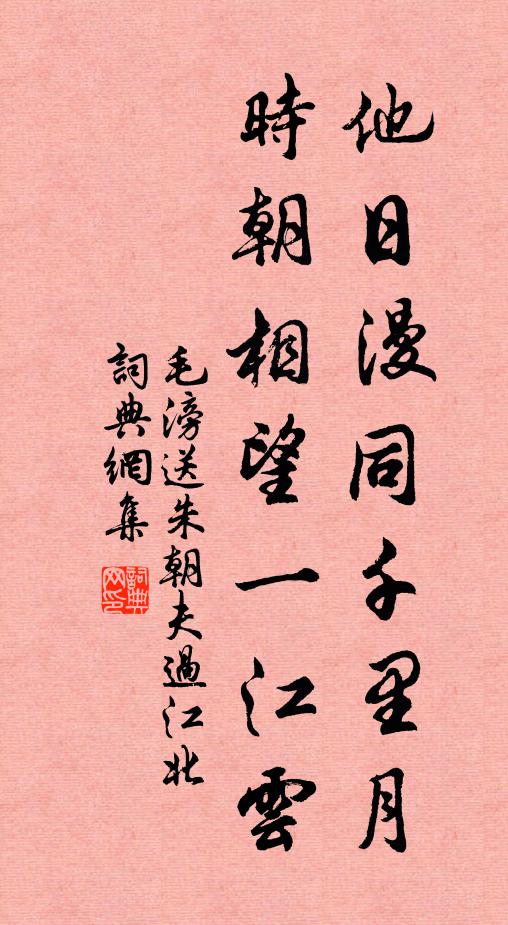 他日漫同千里月
時朝相望一江雲
毛滂送朱朝夫過江北
詞典網集
詞典网印